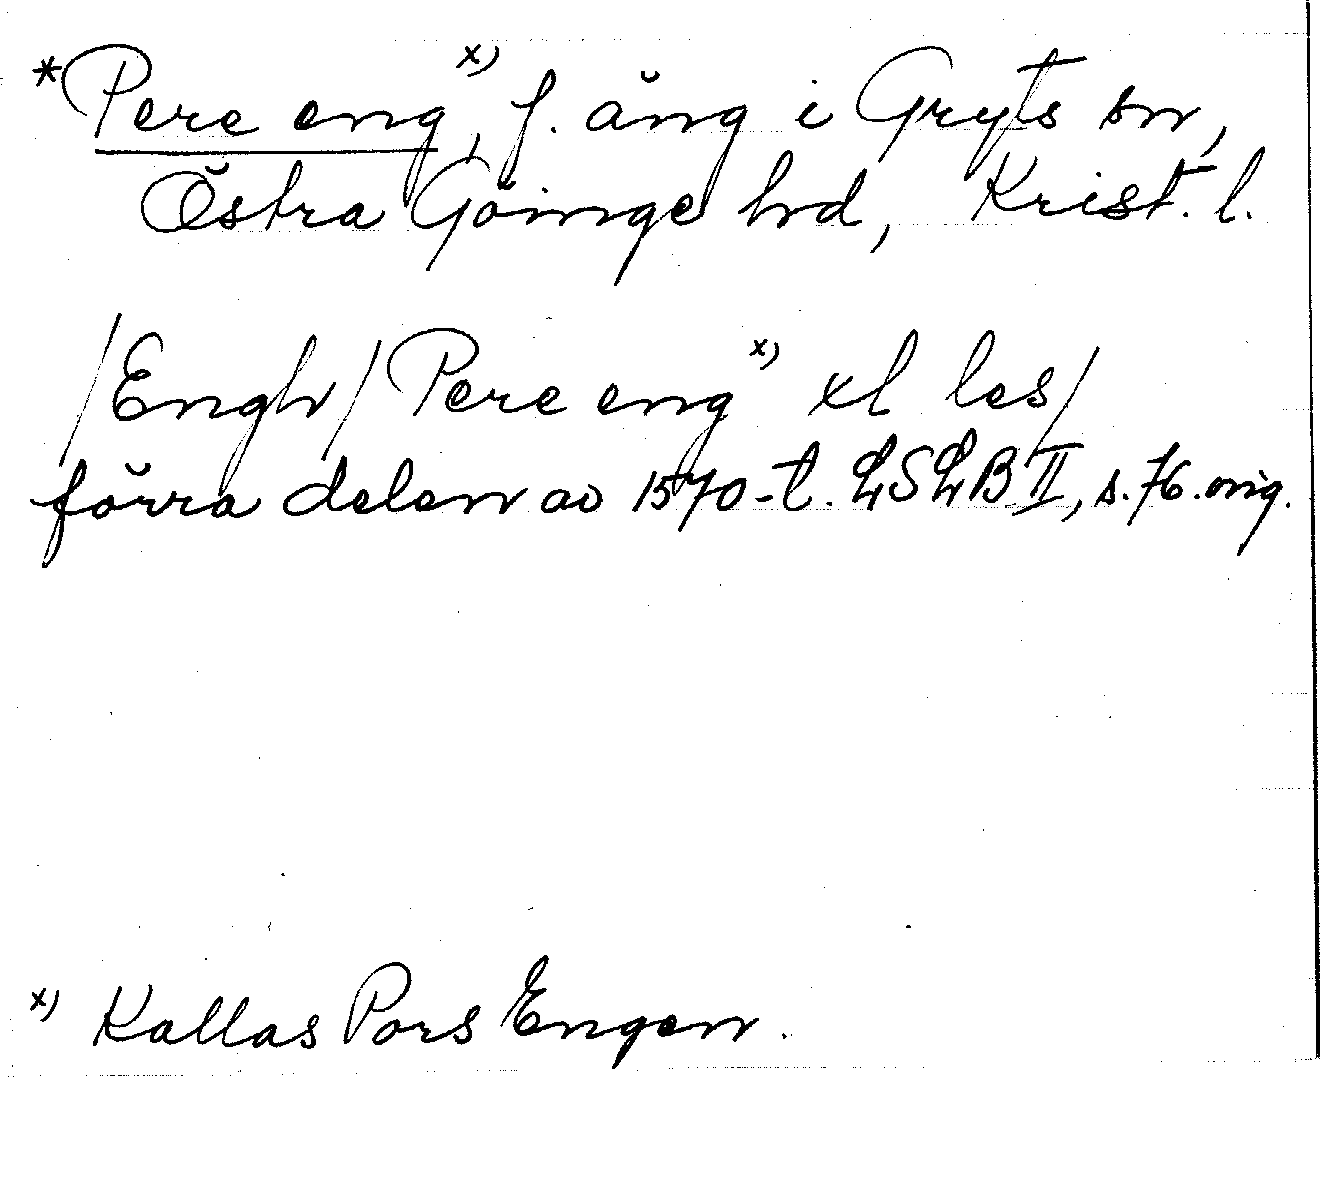 *Pere eng x), f. äng i Gryts sn,
Östra Göinge hd, Krist. l.
/Engh/ Pere eng x) xl les/
förra delen av 1570-t. LSLB II, s. 76. orig.
x) Kallas Pors Engen.